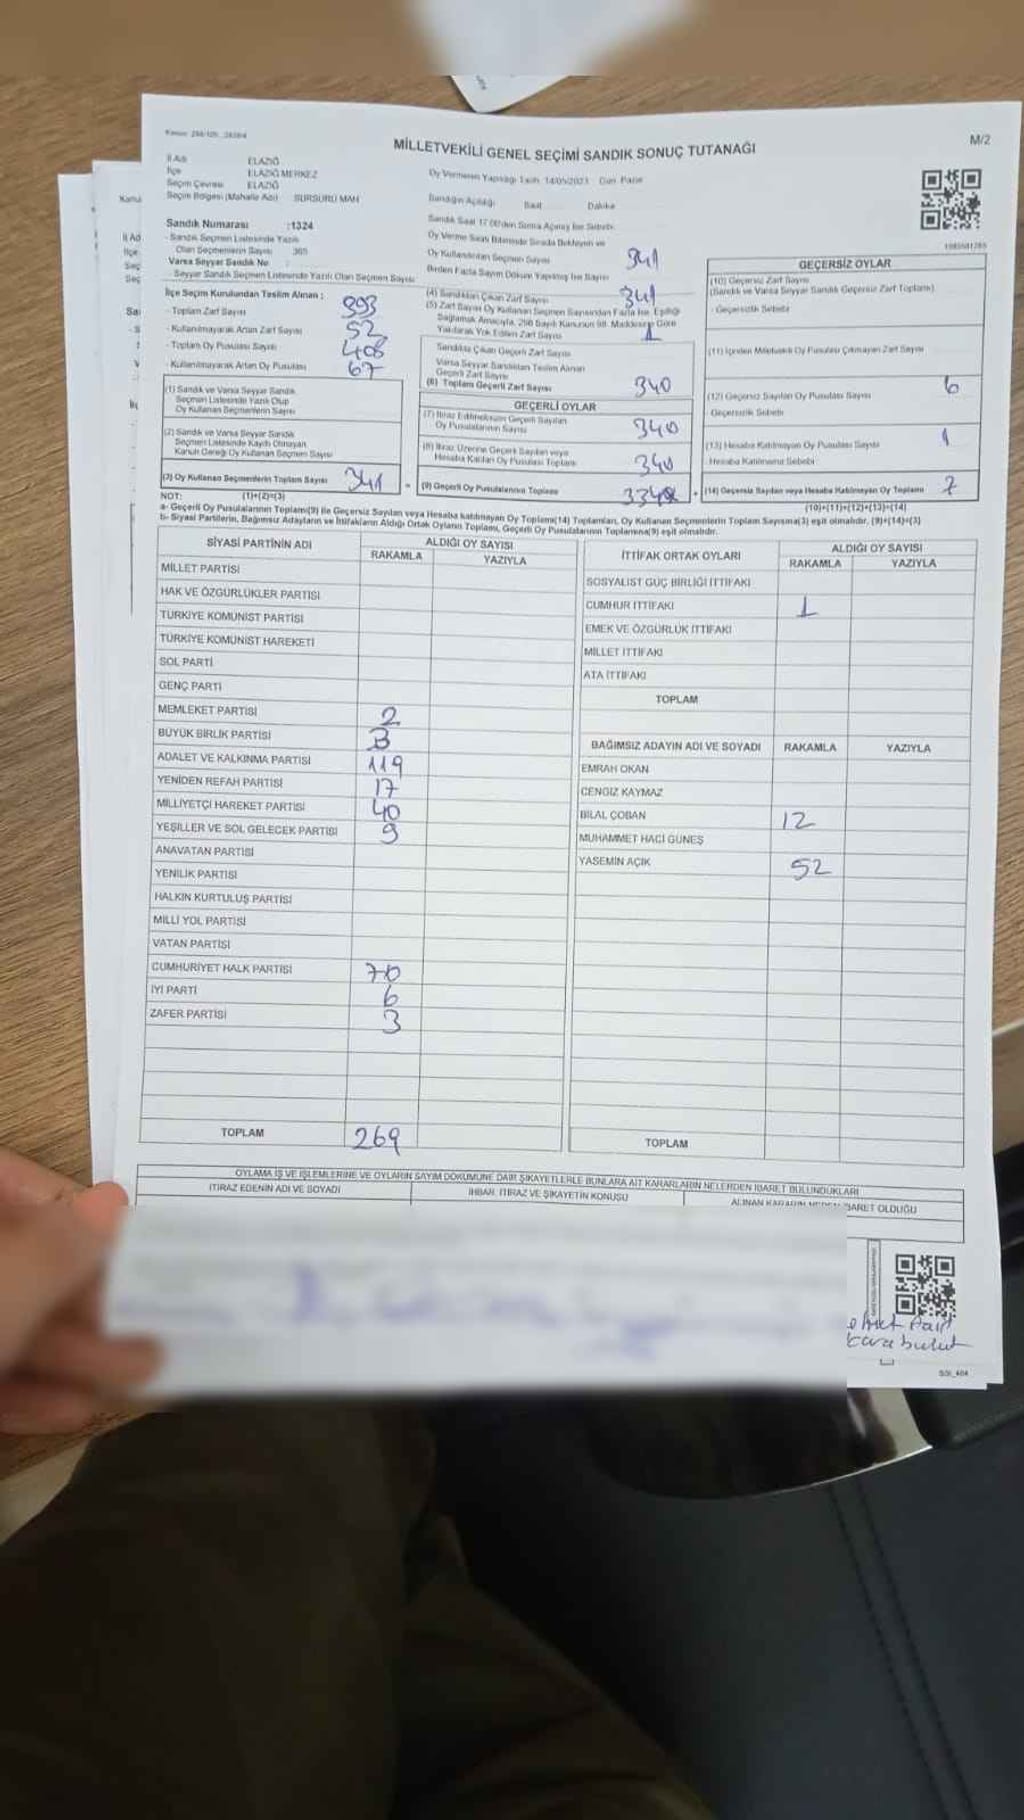 M/2
MİLLETVEKİLİ GENEL SEÇİMİ SANDIK SONUÇ TUTANAĞI
İl Adı ELAZIĞ
İlçe ELAZIĞ MERKEZ
Seçim Çevresi ELAZIĞ
Seçim Bölgesi (Mahalle Adı) SÜRSÜRÜ MAH
Sandık Numarası :1324
- Sandık Seçmen Listesinde Yazılı
Olan Seçmenlerin Sayısı 365
Varsa Seyyar Sandık No
Seyyar Sandık Seçmen Listesinde Yazılı Olan Seçmen Sayısı
İlçe Seçim Kurulundan Teslim Alınan :
- Toplam Zarf Sayısı 393
- Kullanılmayarak Artan Zarf Sayısı 52
- Toplam Oy Pusulası Sayısı 408
- Kullanılmayarak Artan Oy Pusulası 67
(1) Sandık ve Varsa Seyyar Sandık
Seçmen Listesinde Yazılı Olup
Oy Kullanan Seçmenlerin Sayısı
(2) Sandık ve Varsa Seyyar Sandık
Seçmen Listesinde Kayıtlı Olmayan
Kanun Gereği Oy Kullanan Seçmen Sayısı
(3) Oy Kullanan Seçmenlerin Toplam Sayısı 341
Oy Vermenin Yapıldığı Tarih: 14/05/2023 Gün: Pazar
Sandığın Açıldığı Saat Dakika
Sandık Saat 17.00'den Sonra Açılmış İse Sebebi
Oy Verme Saati Bitiminde Sırada Bekleyen ve
Oy Kullandırılan Seçmen Sayısı 341
Birden Fazla Sayım Döküm Yapılmış İse Sayısı
(4) Sandıktan Çıkan Zarf Sayısı 341
(5) Zarf Sayısı Oy Kullanan Seçmen Sayısından Fazla İse, Eşitliği
Sağlamak Amacıyla, 298 Sayılı Kanunun 98. Maddesine Göre
Yakılarak Yok Edilen Zarf Sayısı 1
Sandıkta Çıkan Geçerli Zarf Sayısı
Varsa Seyyar Sandıktan Teslim Alınan
Geçerli Zarf Sayısı
(6) Toplam Geçerli Zarf Sayısı 340
GEÇERLİ OYLAR
(7) İtiraz Edilmeksizin Geçerli Sayılan
Oy Pusulalarının Sayısı 340
(8) İtiraz Üzerine Geçerli Sayılan veya
Hesaba Katılan Oy Pusulası Toplamı 340
(9) Geçerli Oy Pusulalarının Toplamı
GEÇERSİZ OYLAR
(10) Geçersiz Zarf Sayısı
(Sandık ve Varsa Seyyar Sandık Geçersiz Zarf Toplamı)
- Geçersizlik Sebebi
(11) İçinden Milletvekili Oy Pusulası Çıkmayan Zarf Sayısı
(12) Geçersiz Sayılan Oy Pusulası Sayısı 6
-Geçersizlik Sebebi
(13) Hesaba Katılmayan Oy Pusulası Sayısı 1
-Hesaba Katılmama Sebebi
(14) Geçersiz Sayılan veya Hesaba Katılmayan Oy Toplamı 7
NOT: (1)+(2)=(3) (10)+(11)+(12)+(13)=(14)
a- Geçerli Oy Pusulalarının Toplamı(9) ile Geçersiz Sayılan veya Hesaba katılmayan Oy Toplamı(14) Toplamları, Oy Kullanan Seçmenlerin Toplam Sayısına(3) eşit olmalıdır. (9)+(14)=(3)
b- Siyasi Partilerin, Bağımsız Adayların ve İttifakların Aldığı Ortak Oyların Toplamı, Geçerli Oy Pusulalarının Toplamına(9) eşit olmalıdır.
SİYASİ PARTİNİN ADI ALDIĞI OY SAYISI
RAKAMLA YAZIYLA
MİLLET PARTİSİ
HAK VE ÖZGÜRLÜKLER PARTİSİ
TÜRKİYE KOMÜNİST PARTİSİ
TÜRKİYE KOMÜNİST HAREKETİ
SOL PARTİ
GENÇ PARTİ
MEMLEKET PARTİSİ 2
BÜYÜK BİRLİK PARTİSİ 3
ADALET VE KALKINMA PARTİSİ 119
YENİDEN REFAH PARTİSİ 17
MİLLİYETÇİ HAREKET PARTİSİ 40
YEŞİLLER VE SOL GELECEK PARTİSİ 9
ANAVATAN PARTİSİ
YENİLİK PARTİSİ
HALKIN KURTULUŞ PARTİSİ
MİLLİ YOL PARTİSİ
VATAN PARTİSİ
CUMHURİYET HALK PARTİSİ 70
İYİ PARTİ 6
ZAFER PARTİSİ 3
TOPLAM 269
İTTİFAK ORTAK OYLARI ALDIĞI OY SAYISI
RAKAMLA YAZIYLA
SOSYALİST GÜÇ BİRLİĞİ İTTİFAKI
CUMHUR İTTİFAKI 1
EMEK VE ÖZGÜRLÜK İTTİFAKI
MİLLET İTTİFAKI
ATA İTTİFAKI
TOPLAM
BAĞIMSIZ ADAYIN ADI VE SOYADI RAKAMLA YAZIYLA
EMRAH OKAN
CENGİZ KAYMAZ
BİLAL ÇOBAN 12
MUHAMMET HACI GÜNEŞ
YASEMİN AÇIK 52
TOPLAM
OYLAMA İŞ VE İŞLEMLERİNE VE OYLARIN SAYIM DÖKÜMÜNE DAİR ŞİKAYETLERLE BUNLARA AİT KARARLARIN NELERDEN İBARET BULUNDUKLARI
İTİRAZ EDENİN ADI VE SOYADI İHBAR, İTİRAZ VE ŞİKAYETİN KONUSU ALINAN KARARIN NEDEN İBARET OLDUĞU
karabulut